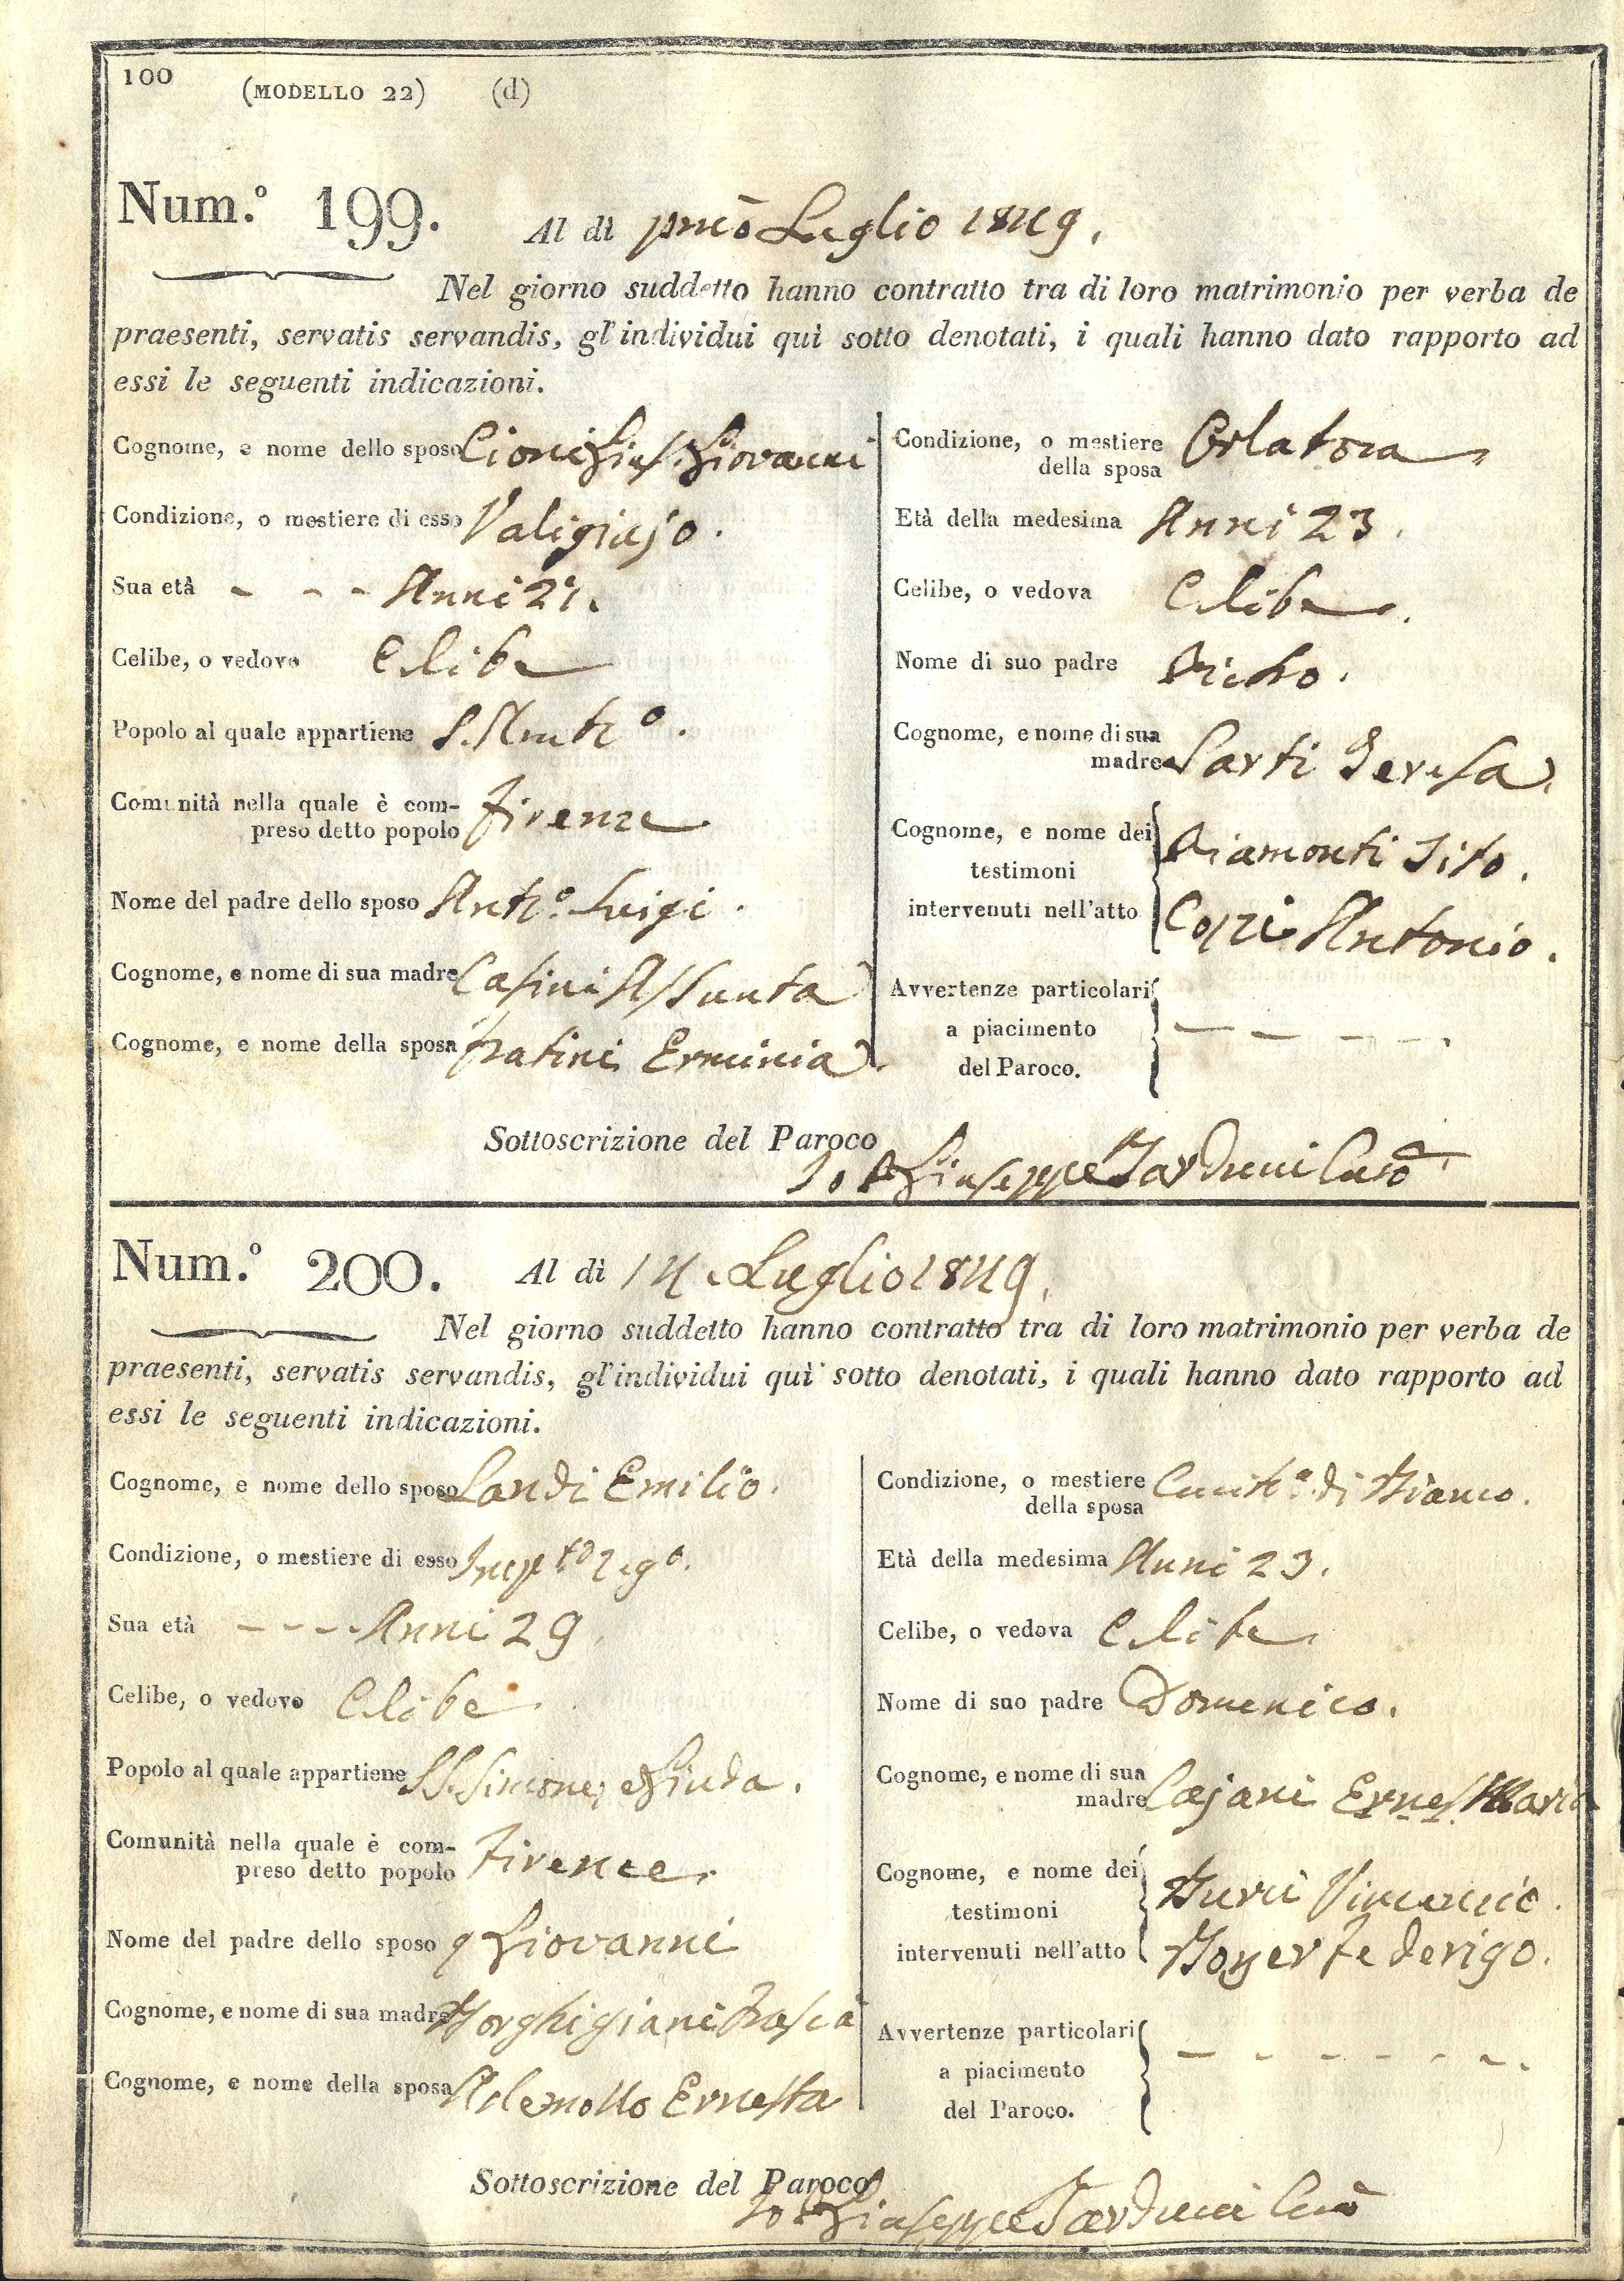 100 (MODELLO 22) (d)
Num.º 199. Al dì pmo Luglio 1849.
Nel giorno suddetto hanno contratto tra di loro matrimonio per verba de
praesenti, servatis servandis, gl'individui quì sotto denotati, i quali hanno dato rapporto ad
essi le seguenti indicazioni.
Cognome, e nome dello sposo Cioni Gius. Giovanni
Condizione, o mestiere di esso Valigiajo.
Sua età - - - Anni 21.
Celibe, o vedovo Celibe
Popolo al quale appartiene S.
Comunità nella quale è com-
preso detto popolo Firenze
Nome del padre dello sposo Anto. Luigi.
Cognome, e nome di sua madre Casini Assunta
Cognome, e nome della sposa Fratini Erminia.
Condizione, o mestiere
della sposa Orlatora
Età della medesima Anni 23.
Celibe, o vedova Celibe.
Nome di suo padre
Cognome, e nome di sua
madre Sarti Teresa.
Cognome, e nome dei
testimoni
intervenuti nell'atto
Diamonti Tito.
Cozzi Antonio.
Avvertenze particolari
a piacimento
del Paroco. - - - -.
Sottoscrizione del Paroco
Io P. Giuseppe Tarduci Curo
Num.º 200. Al dì 14. Luglio 1849.
Nel giorno suddetto hanno contratto tra di loro matrimonio per verba de
praesenti, servatis servandis, gl'individui quì sotto denotati, i quali hanno dato rapporto ad
essi le seguenti indicazioni.
Cognome, e nome dello sposo Landi Emilio.
Condizione, o mestiere di esso
Sua età - - - - Anni 29.
Celibe, o vedovo Celibe
Popolo al quale appartiene SS. Simone, e Giuda.
Comunità nella quale è com-
preso detto popolo Firenze.
Nome del padre dello sposo q Giovanni
Cognome, e nome di sua madre Borghigiani
Cognome, e nome della sposa Ademollo Ernesta
Condizione, o mestiere
della sposa di Bianco.
Età della medesima Anni 23.
Celibe, o vedova Celibe
Nome di suo padre Domenico.
Cognome, e nome di sua
madre Cajani Maria
Cognome, e nome dei
testimoni
intervenuti nell'atto
Vincenzio.
Federigo.
Avvertenze particolari
a piacimento
del Paroco. - - - - - - -.
Sottoscrizione del Paroco
Io P. Giuseppe Tarduci Curo